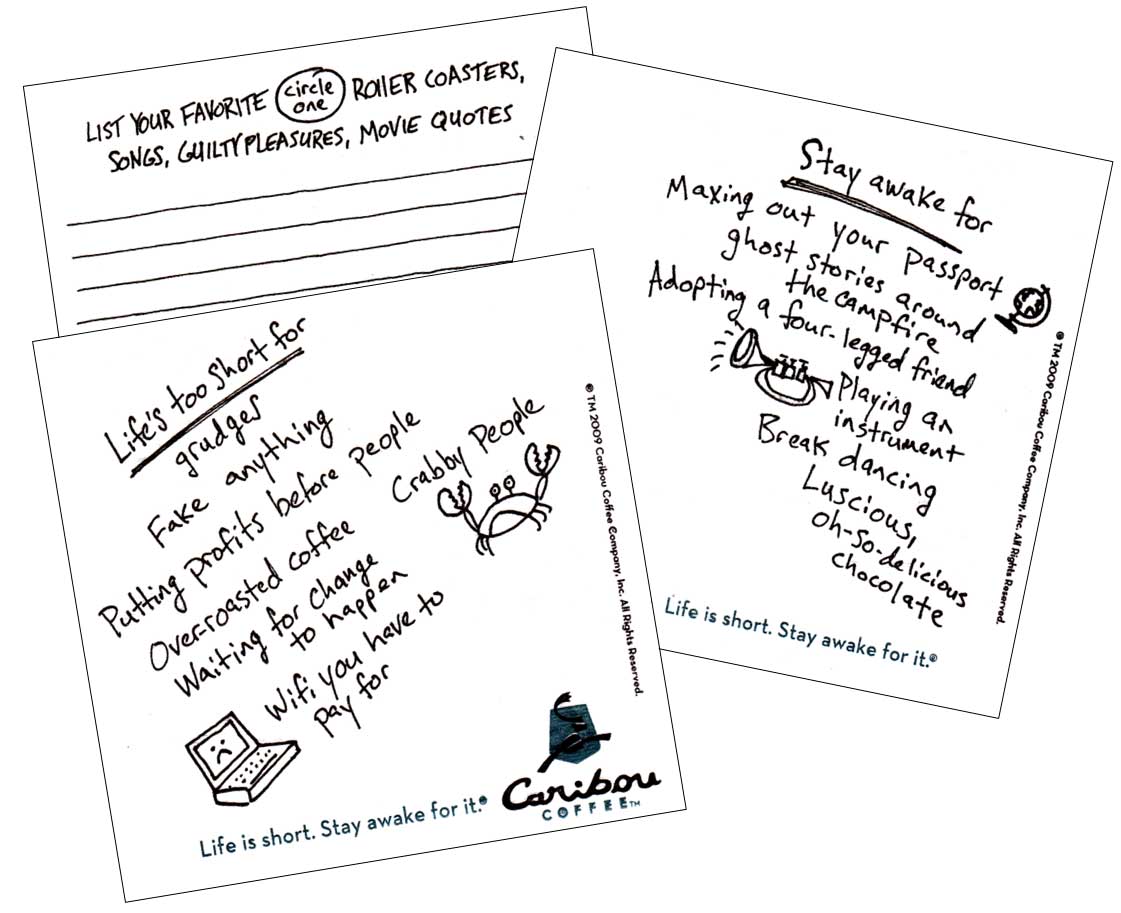 LIST YOUR FAVORITE circle one ROLLER COASTERS,
SONGS, GUILTY PLEASURES, MOVIE QUOTES
Stay awake for
Maxing out your passport
ghost stories around
the campfire
Adopting a four-legged friend
Playing an
instrument
Break dancing
Luscious,
oh-so-delicious
chocolate
Life is short. Stay awake for it.®
® TM 2009 Caribou Coffee Company, Inc. All Rights Reserved.
Life's too short for
grudges
Fake anything
Putting profits before people
Over-roasted coffee
Waiting for change
to happen
Wifi you have to
pay for
Crabby People
® TM 2009 Caribou Coffee Company, Inc. All Rights Reserved.
Life is short. Stay awake for it.®
Caribou
COFFEE™